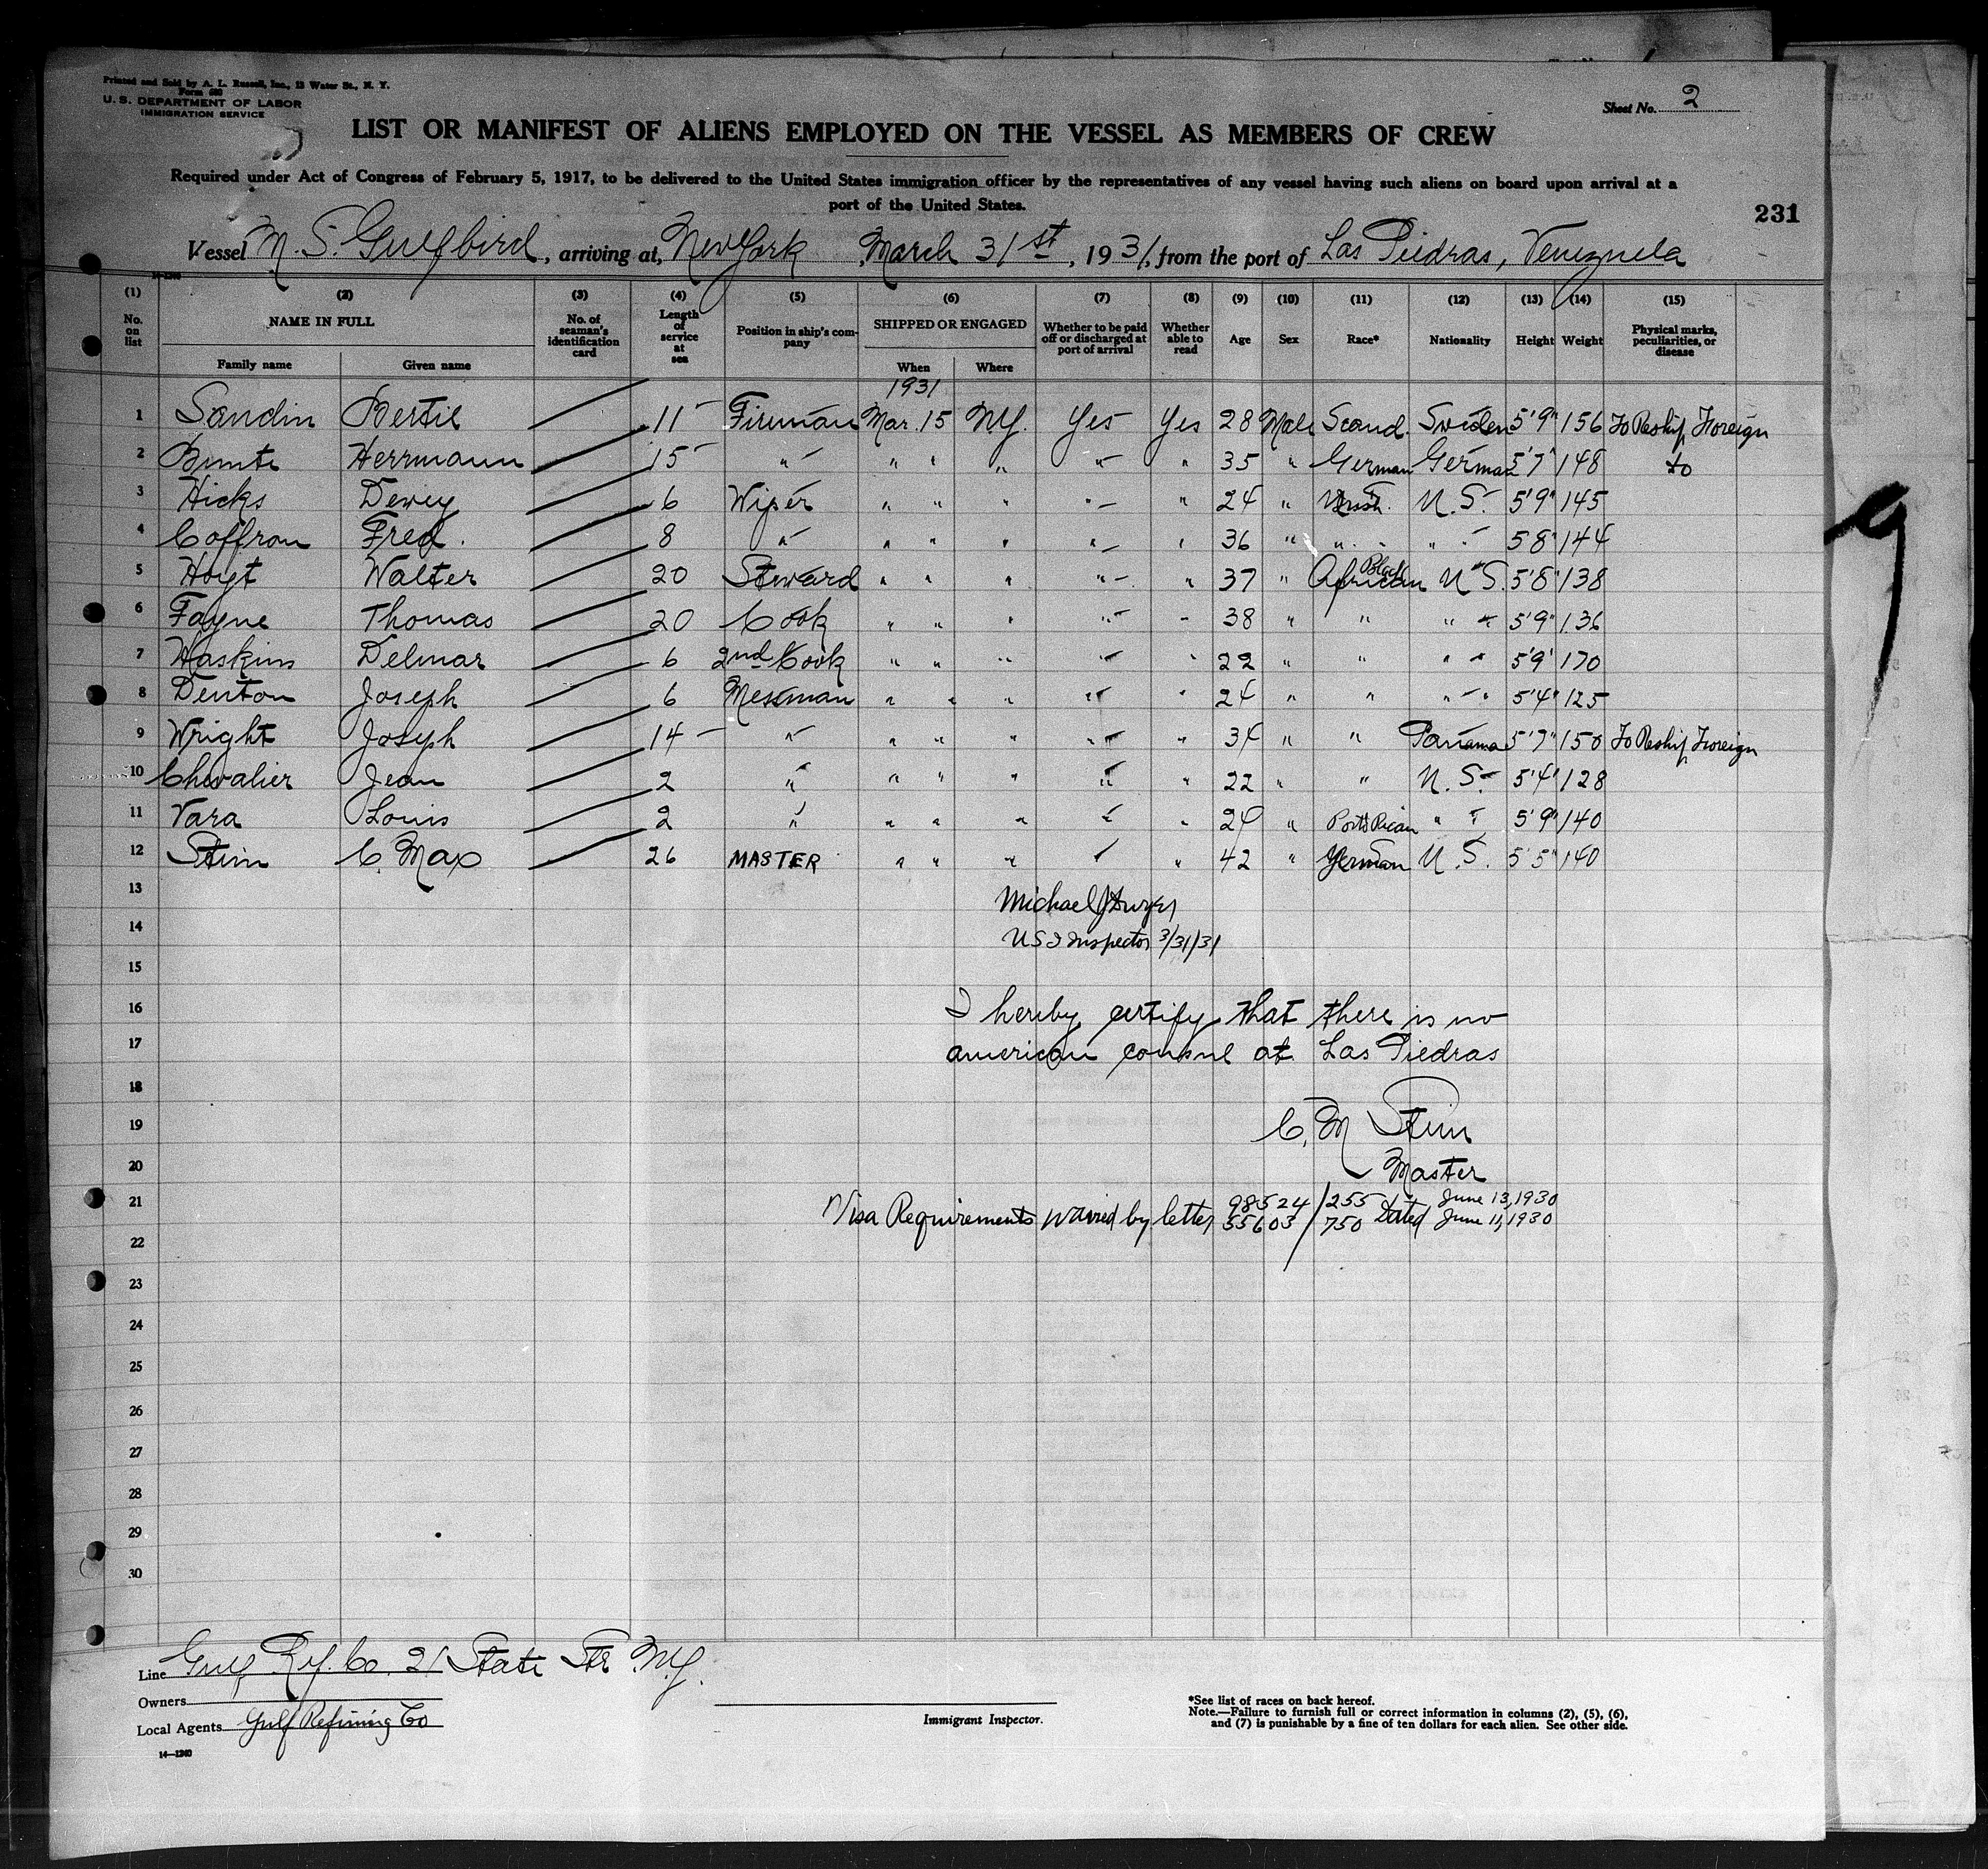 Printed and Sold by A. L. Russell, Inc., 13 Water St., N. Y.
Form 680
U. S. DEPARTMENT OF LABOR
IMMIGRATION SERVICE
Sheet No. 2
LIST OR MANIFEST OF ALIENS EMPLOYED ON THE VESSEL AS MEMBERS OF CREW
Required under Act of Congress of February 5, 1917, to be delivered to the United States immigration officer by the representatives of any vessel having such aliens on board upon arrival at a
port of the United States.
231
Vessel M. S. Gulfbird, arriving at, New York, March 31st, 1931, from the port of Las Piedras, Venezuela
14-1240
(1) (2) (3) (4) (5) (6) (7) (8) (9) (10) (11) (12) (13) (14) (15)
No. on list NAME IN FULL No. of seaman's identification card Length of service at sea Position in ship's company SHIPPED OR ENGAGED Whether to be paid off or discharged at port of arrival Whether able to read Age Sex Race* Nationality Height Weight Physical marks, peculiarities, or disease
Family name Given name When Where
1931
1 Sandin Bertil 11 Fireman Mar. 15 N.Y. Yes Yes 28 Male Scand. Sweden 5'9" 156 To Reship Foreign
2 Bunte Herrmann 15 " " " " " " 35 " German German 5'7" 148 do
3 Hicks Dewey 6 Wiper " " " " " 24 " U.S. 5'9" 145
4 Coffron Fred. 8 " " " " " " 36 " " " " 5'8" 144
5 Hoyt Walter 20 Steward " " " " " 37 " African Black U.S. 5'8" 138
6 Fayne Thomas 20 Cook " " " " " 38 " " " " 5'9" 136
7 Haskins Delmar 6 2nd Cook " " " " " 22 " " " " 5'9" 170
8 Denton Joseph 6 Messman " " " " " 24 " " " " 5'4" 125
9 Wright Joseph 14 " " " " " " 34 " " Panama 5'7" 150 To Reship Foreign
10 Chevalier Jean 2 " " " " " " 22 " " U.S. 5'4" 128
11 Vara Louis 2 " " " " " " 24 " Porto Rican " " 5'9" 140
12 Stein C. Max 26 MASTER " " " " " 42 " German U.S. 5'5" 140
13 Michael J Dwyer
14 US I Inspector 3/31/31
15
16 I hereby certify that there is no
17 american consul at Las Piedras
18
19 C. M Stein
20 Master
21 Visa Requirements waived by letter 98524/255 Dated June 13, 1930
55603/750 June 11, 1930
22
23
24
25
26
27
28
29
30
Line Gulf Ref. Co. 21 State Str N.Y.
Owners
Local Agents Gulf Refining Co
Immigrant Inspector.
*See list of races on back hereof.
Note.—Failure to furnish full or correct information in columns (2), (5), (6),
and (7) is punishable by a fine of ten dollars for each alien. See other side.
14—1240
9